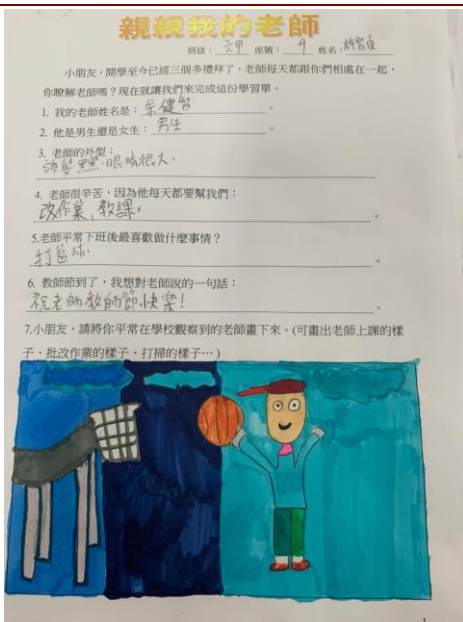 親親我的老師
班級：六甲 座號：9 姓名：許
小朋友，開學至今已經三個多禮拜了，老師每天都跟你們相處在一起，
你瞭解老師嗎？現在就讓我們來完成這份學習單。
1. 我的老師姓名是：余健智。
2. 他是男生還是女生：男生。
3. 老師的外型：
頭髮黑黑,眼睛很大。
4. 老師很辛苦，因為他每天都要幫我們：
改作業,教課。
5.老師平常下班後最喜歡做什麼事情？
打籃球
6. 教師節到了，我想對老師說的一句話：
祝老師教師節快樂!
7.小朋友，請將你平常在學校觀察到的老師畫下來。(可畫出老師上課的樣
子、批改作業的樣子、打掃的樣子…)
1